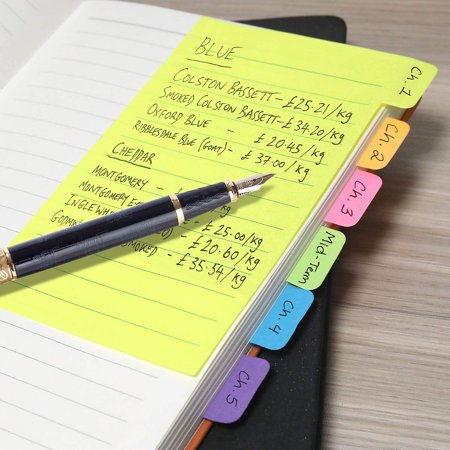 BLUE
COLSTON BASSETT - £25.21/kg
SMOKED COLSTON BASSETT - £34.20/kg
OXFORD BLUE - £20.45/kg
RIBBLESDALE BLUE (GOAT) - £37.00/kg
CHEDDAR
MONTGOMERY -
MONTGOMERY
INGLEWH - £25.00/kg
- £20.60/kg
SMOKED - £35.54/kg
Ch.1
Ch.2
Ch.3
Mid-Term
Ch.4
Ch.5